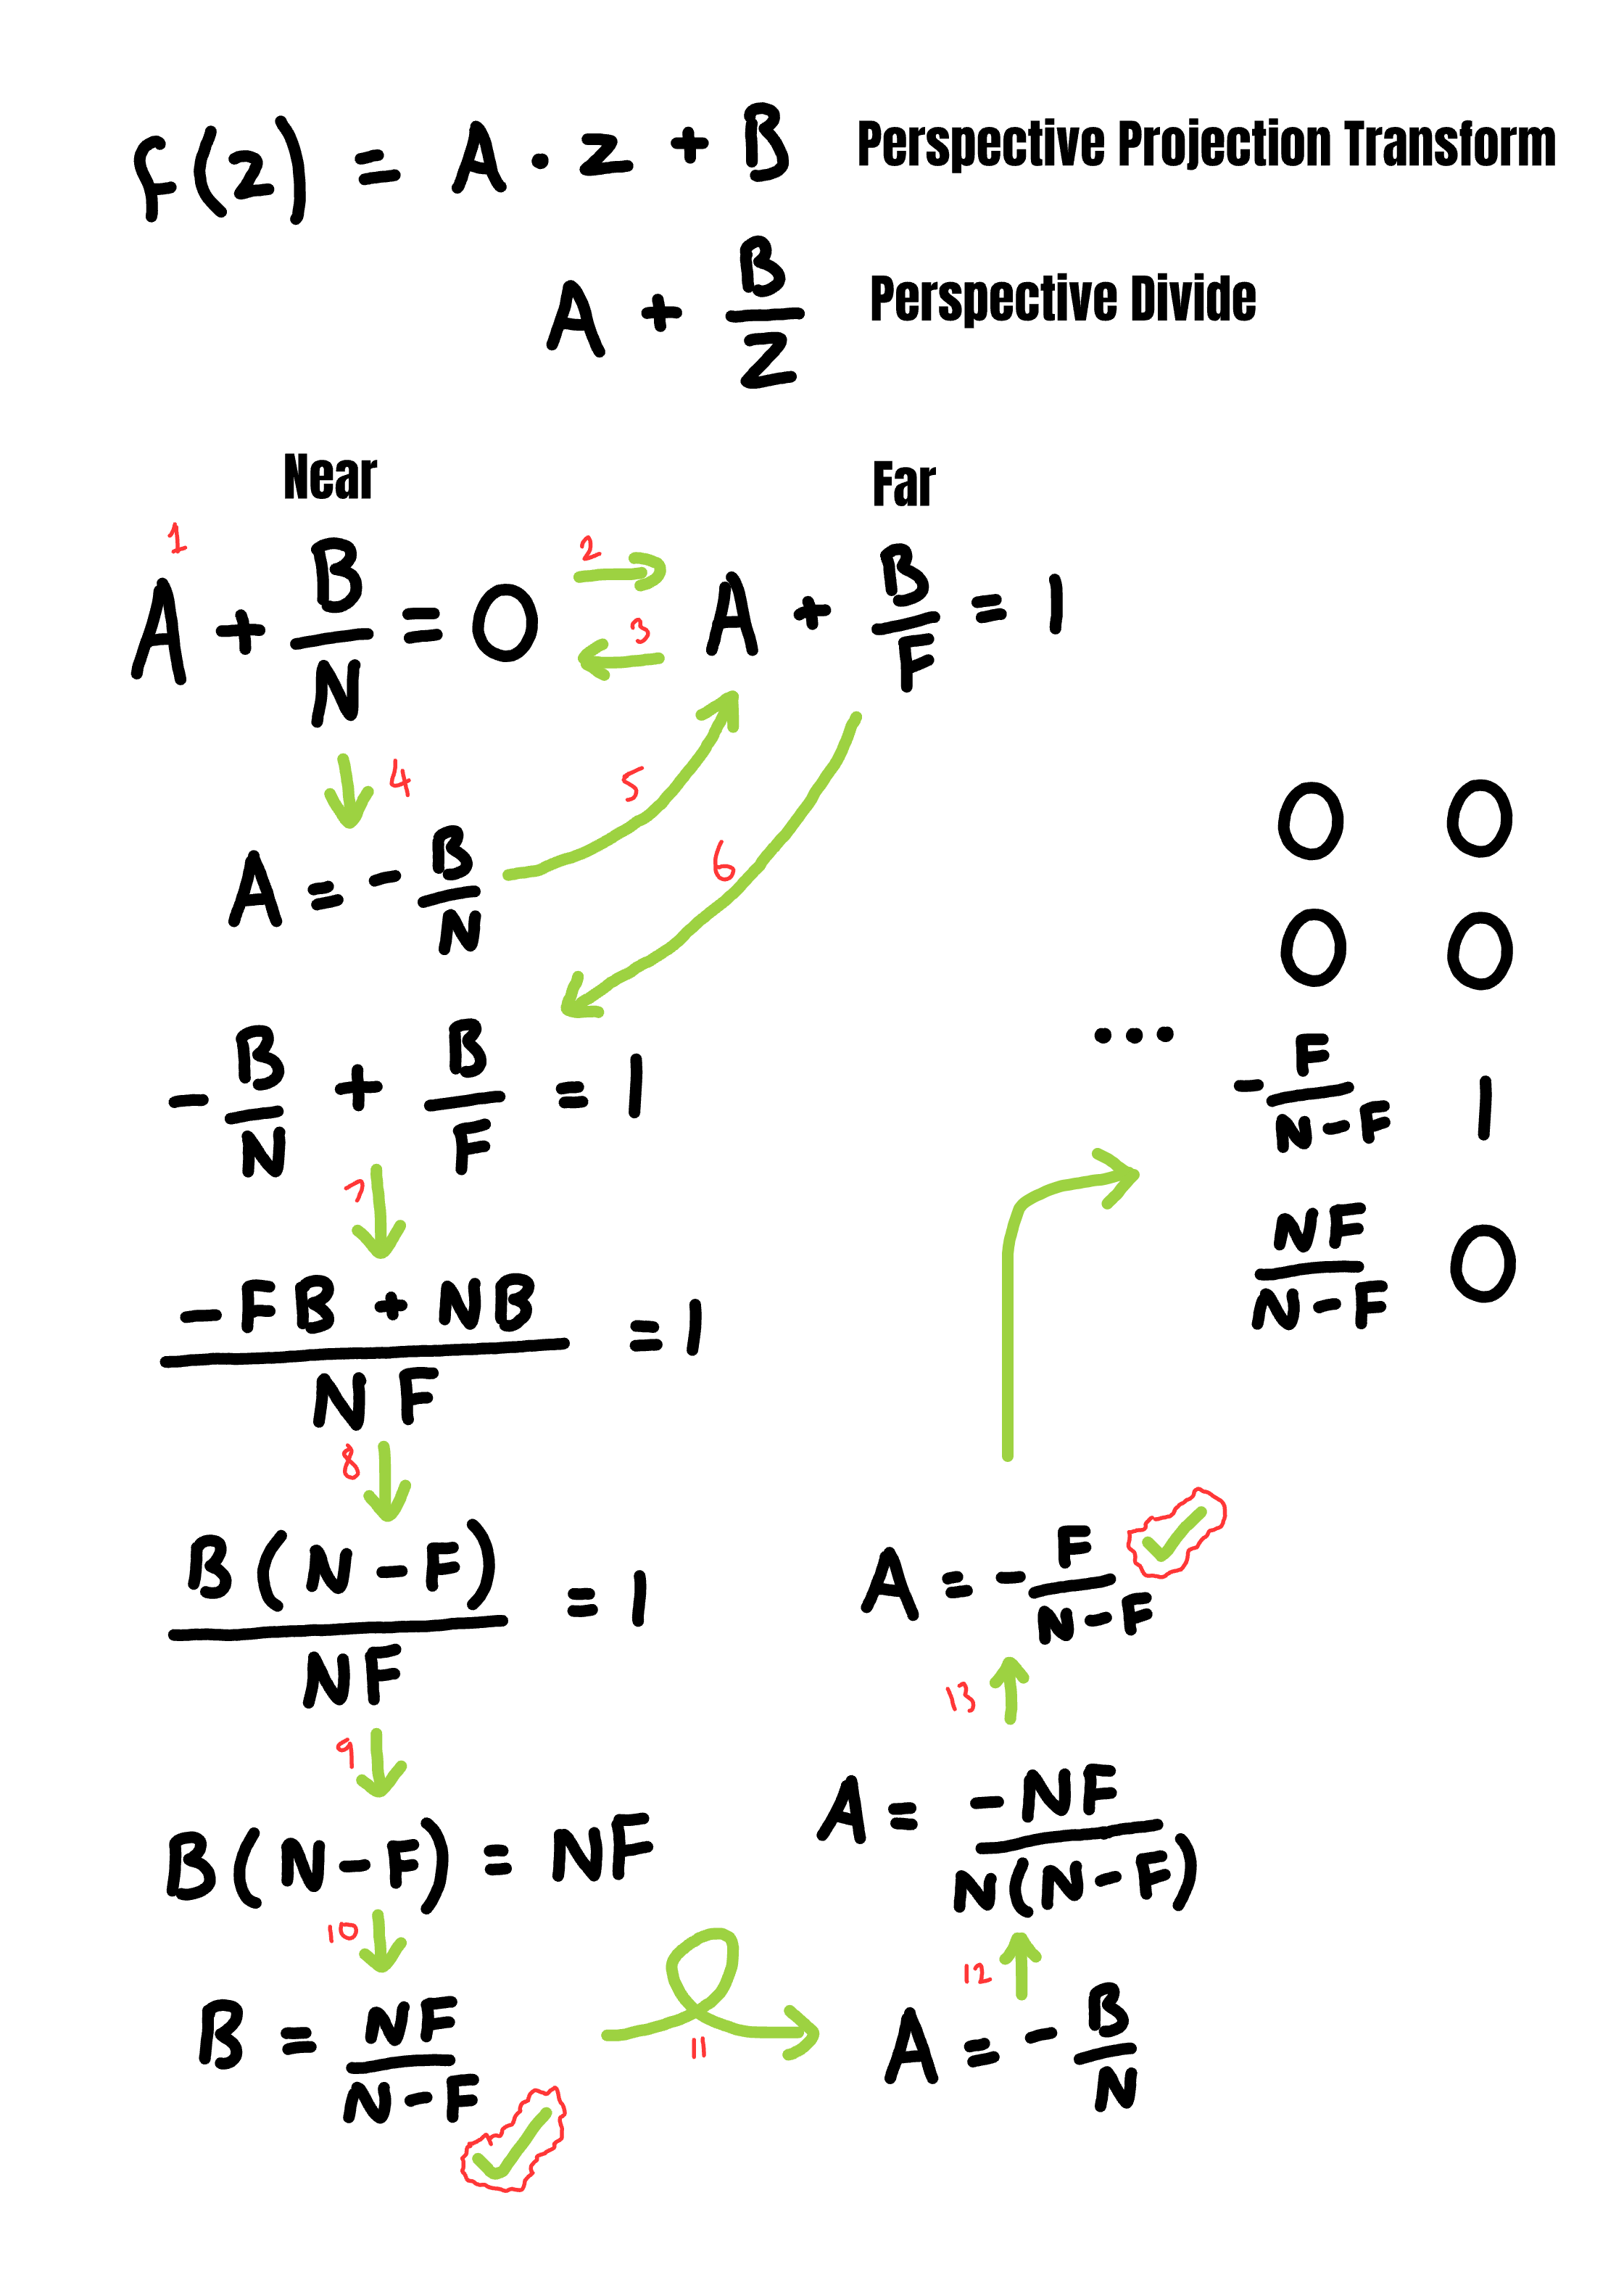 f(z) = A · z + B Perspective Projection Transform
A + B/Z Perspective Divide
Near Far
1
A + B/N = 0 2 3 A + B/F = 1
4 5 6
A = - B/N
- B/N + B/F = 1
7
(-FB + NB)/(NF) = 1
8
B(N-F)/(NF) = 1
9
B(N-F) = NF
10
B = NF/(N-F)
11
A = - B/N
12
A = -NF/(N(N-F))
13
A = - F/(N-F)
0 0
0 0
... - F/(N-F) 1
NF/(N-F) 0